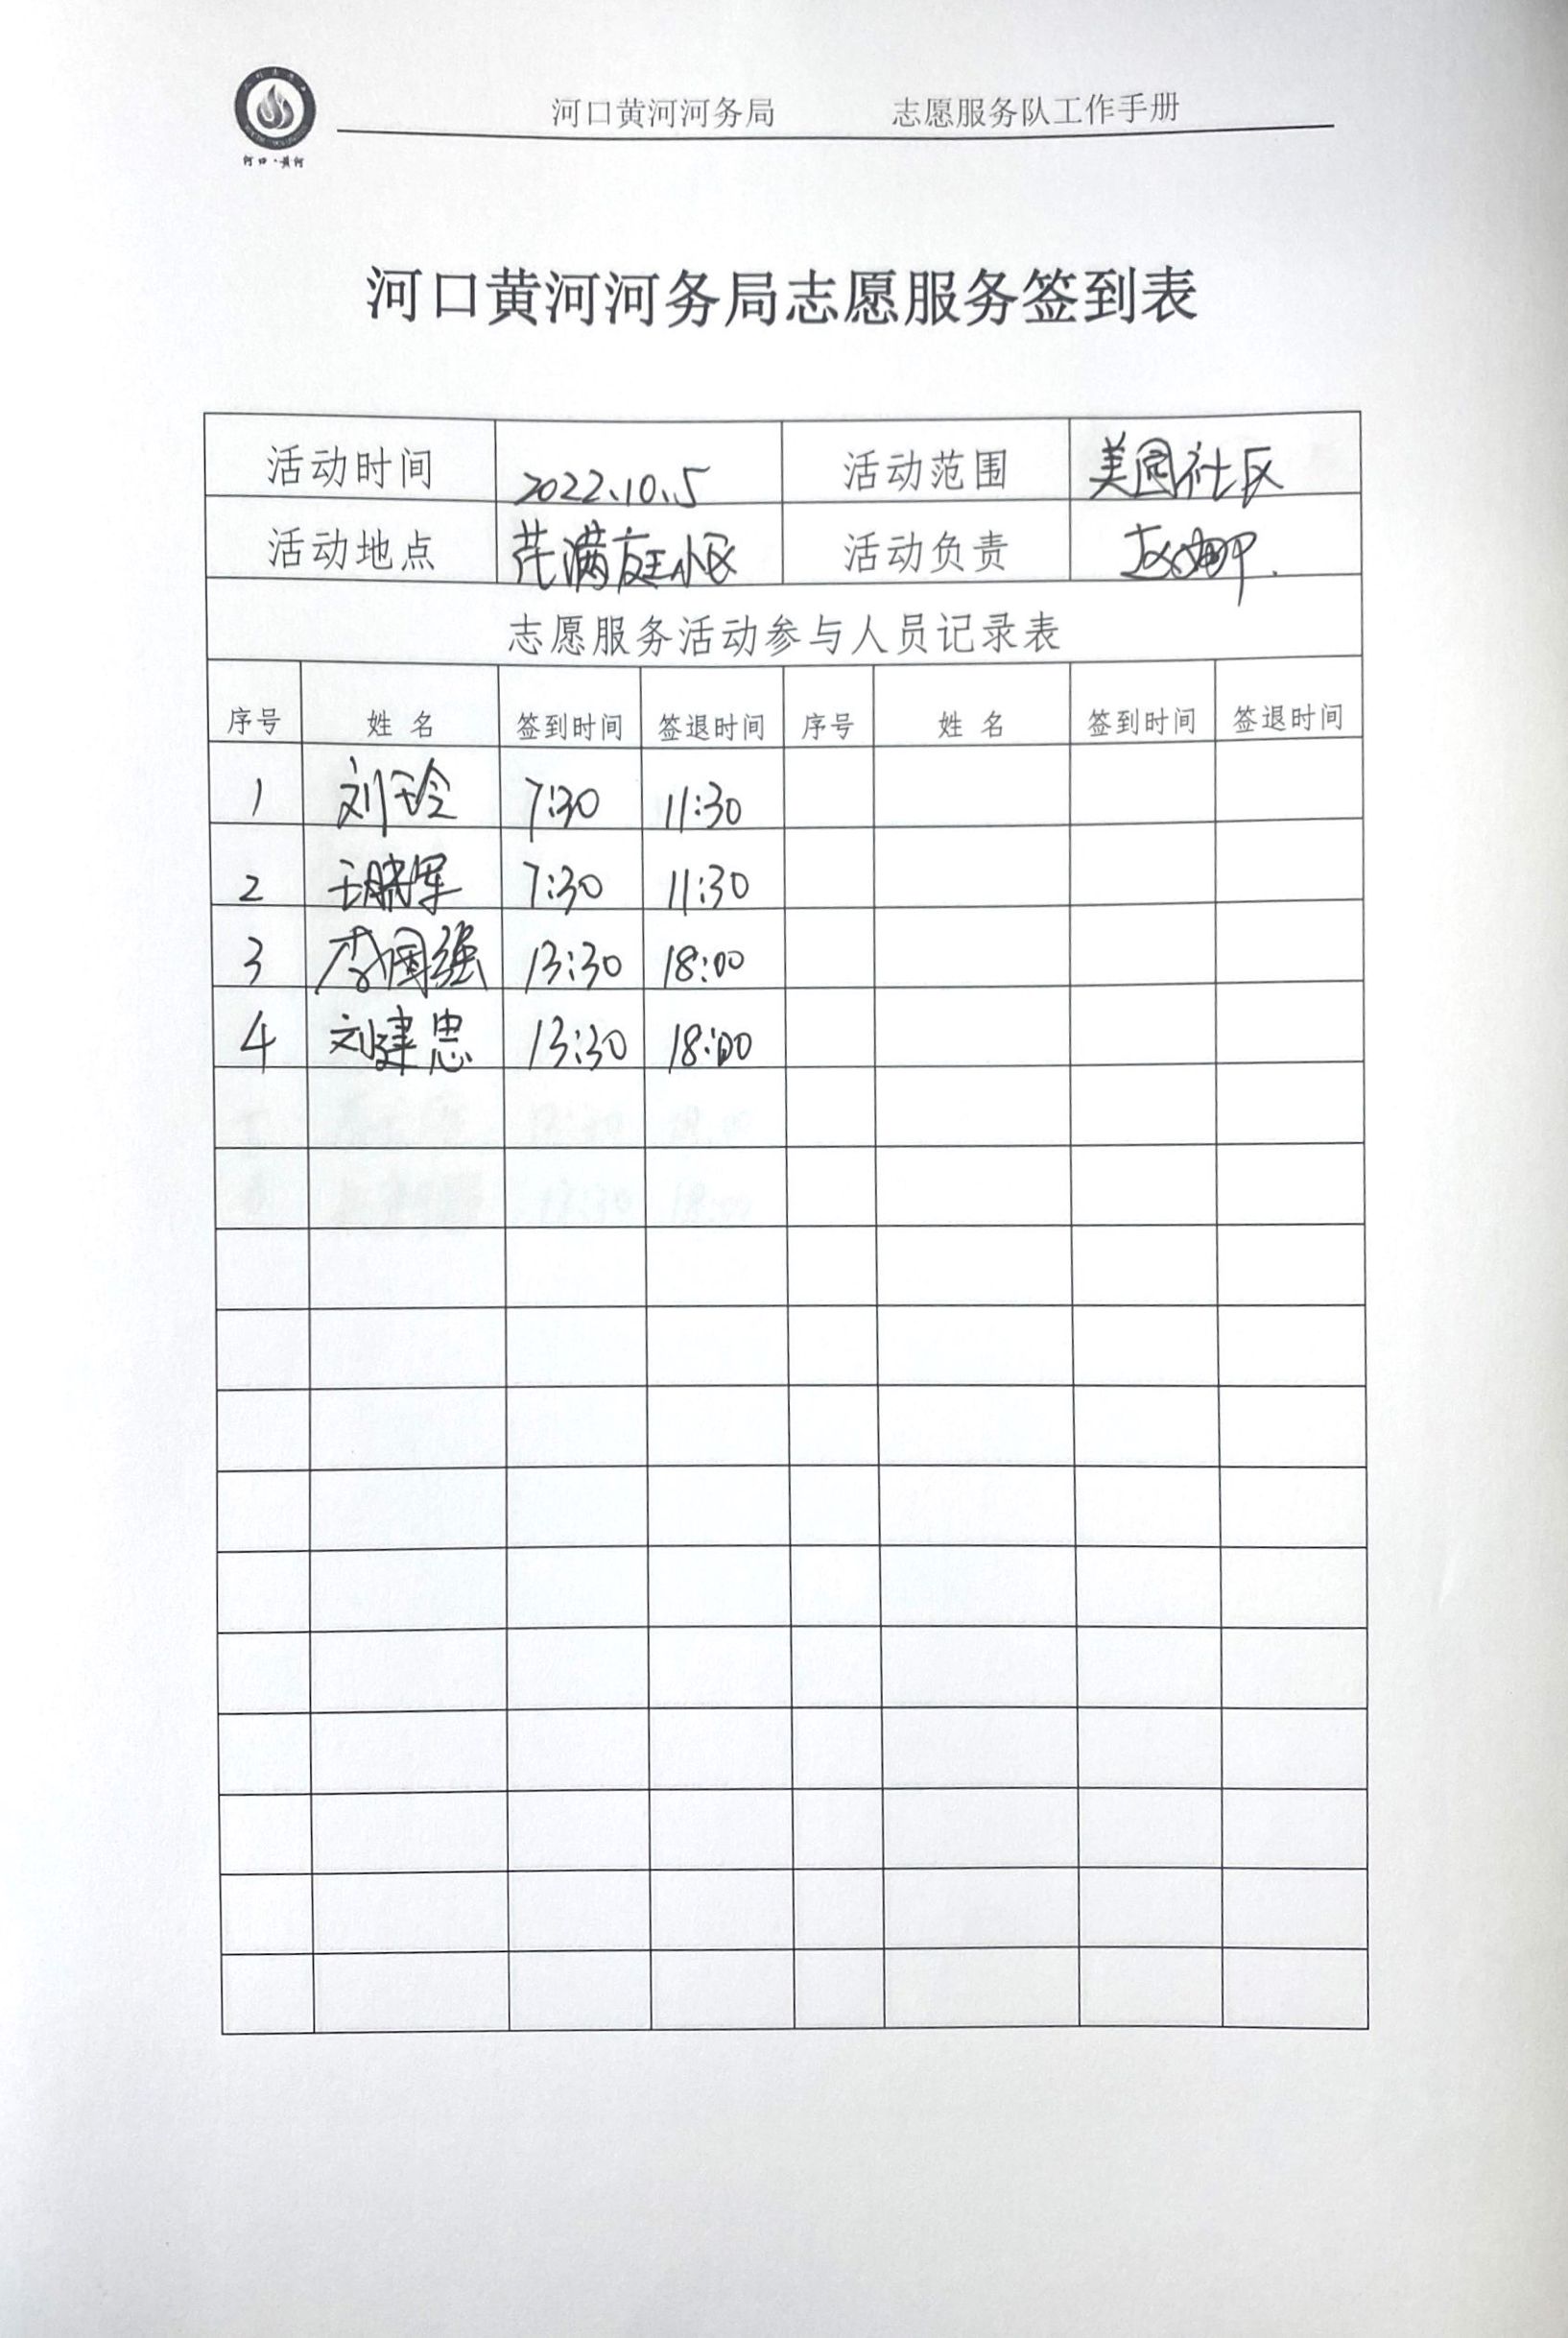 河口·黄河
河口黄河河务局 志愿服务队工作手册
河口黄河河务局志愿服务签到表
活动时间 2022.10.5 活动范围 美园社区
活动地点 花满庭小区 活动负责 赵娜
志愿服务活动参与人员记录表
序号 姓名 签到时间 签退时间 序号 姓名 签到时间 签退时间
1 刘玉玲 7:30 11:30
2 王晓军 7:30 11:30
3 李国强 13:30 18:00
4 刘建忠 13:30 18:00